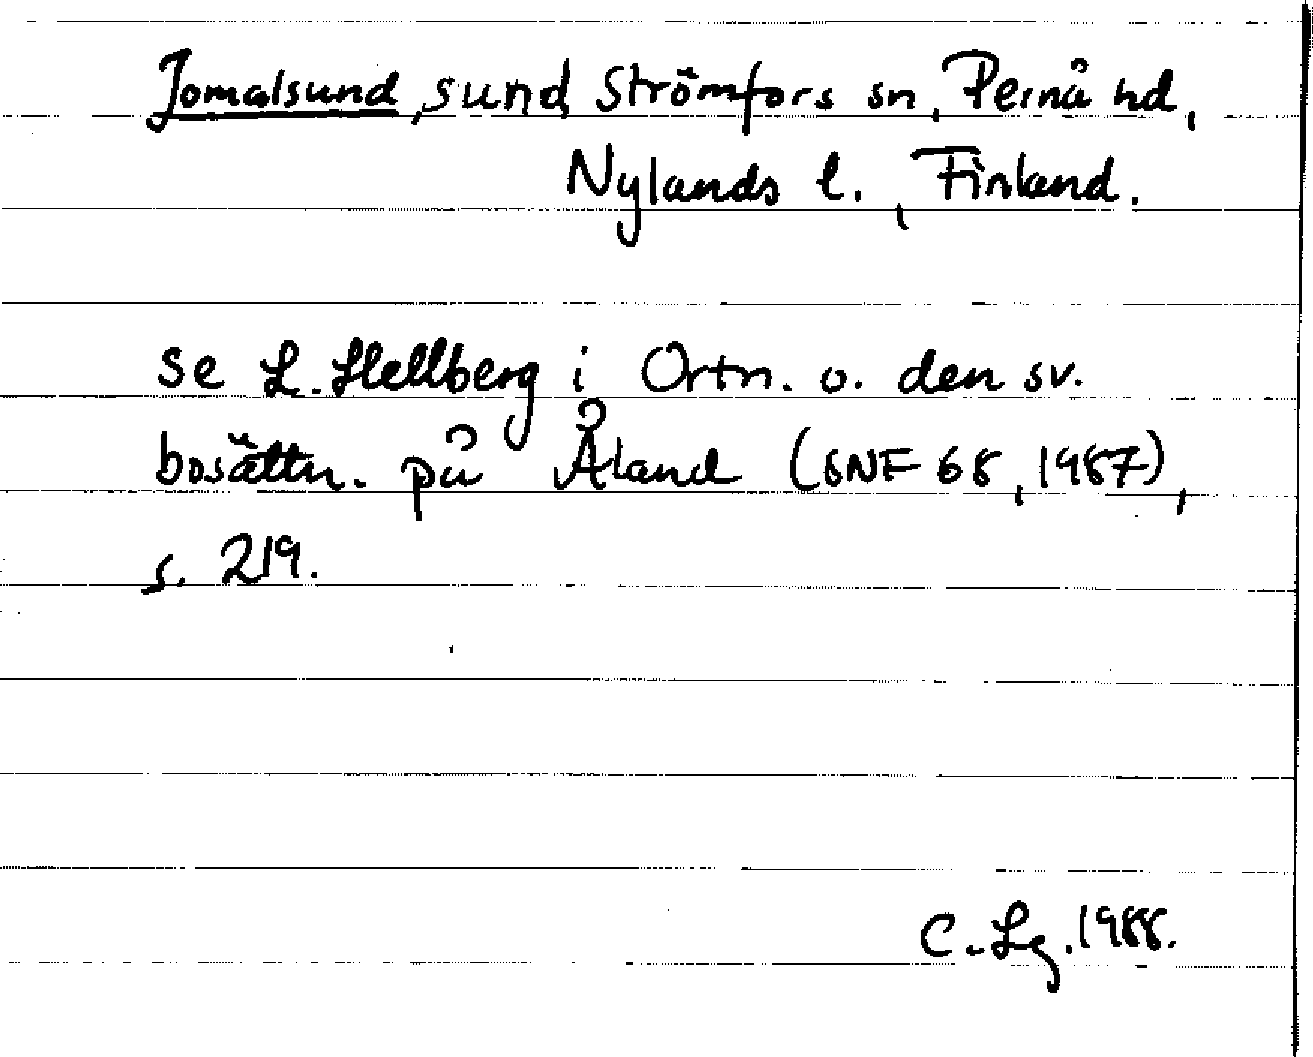 Jomalsund, sund, Strömfors sn, Pernå hd,
Nylands l., Finland.
se L. Hellberg i Ortn. o. den sv.
bosättn. på Åland (SNF 68, 1987),
s. 219.
C. Lg. 1988.